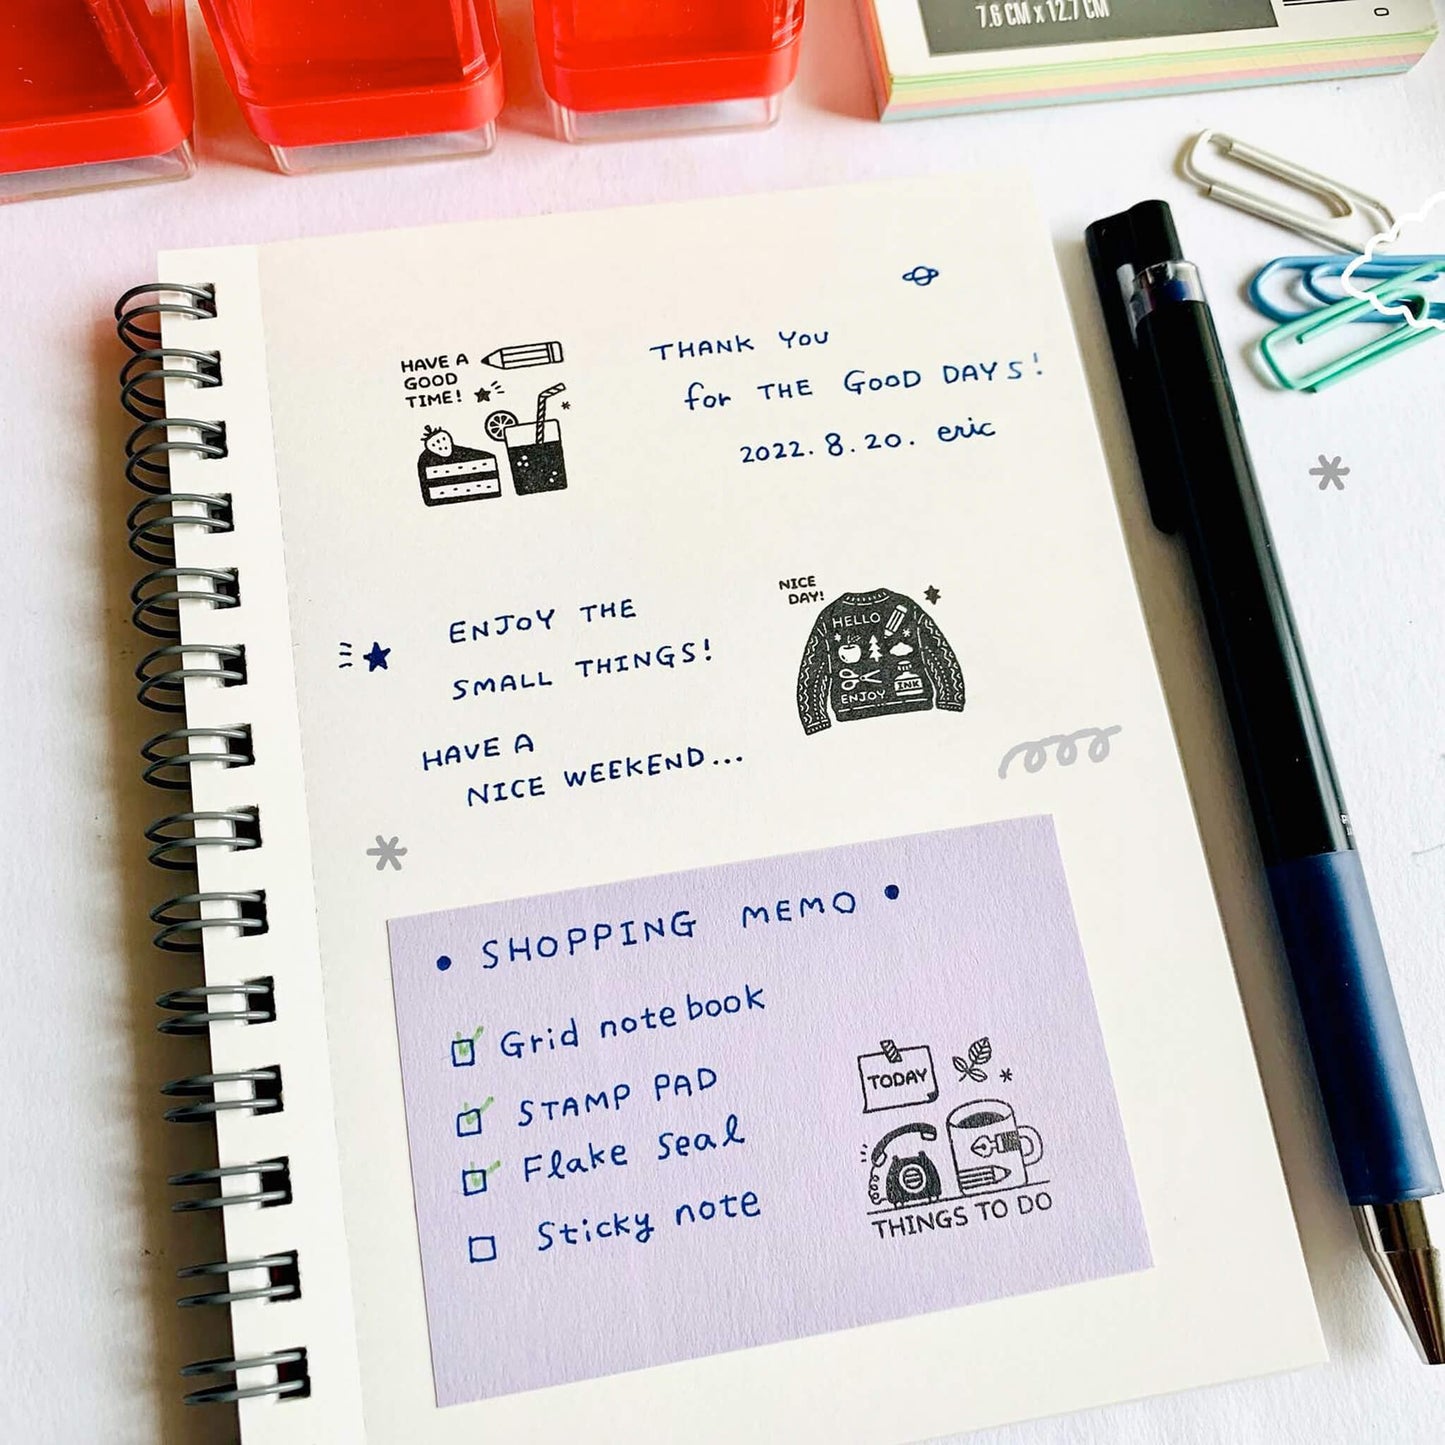 7.6 CM x 12.7 CM
HAVE A
GOOD
TIME!
THANK YOU
for THE GOOD DAYS!
2022. 8. 20. eric
ENJOY THE
SMALL THINGS!
HAVE A
NICE WEEKEND...
NICE
DAY!
HELLO
INK
ENJOY
• SHOPPING MEMO •
Grid notebook
STAMP PAD
Flake seal
Sticky note
TODAY
THINGS TO DO